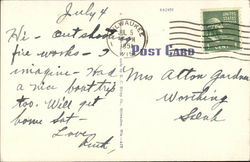 July 4
Hi - out shooting
fire works - I
imagine - Had
a nice boat trip
too. Will get
home Sat -
Love,
Ruth
MILWAUKEE
JUL 5
POST CARD
Mrs Alton Gardner
Worthing
S. Dak